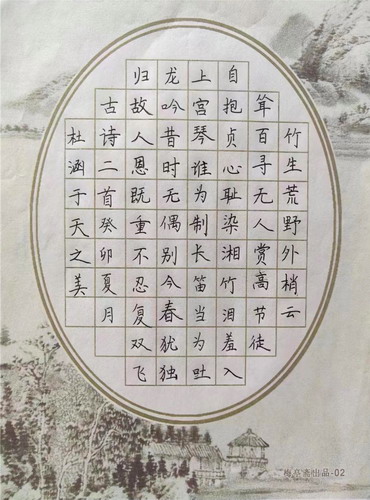 竹生荒野外梢云
耸百寻无人赏高节徒
自抱贞心耻染湘竹泪羞入
上宫琴谁为制长笛当为吐
龙吟昔时无偶别今春犹独
归故人恩既重不忍复双飞
古诗二首癸卯夏月
杜涵于天之美
出品-02